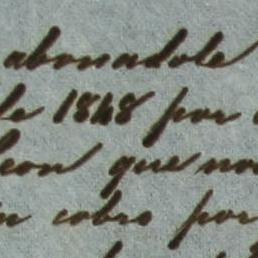 abonadole
de 1848 por
con que no
in cobro por